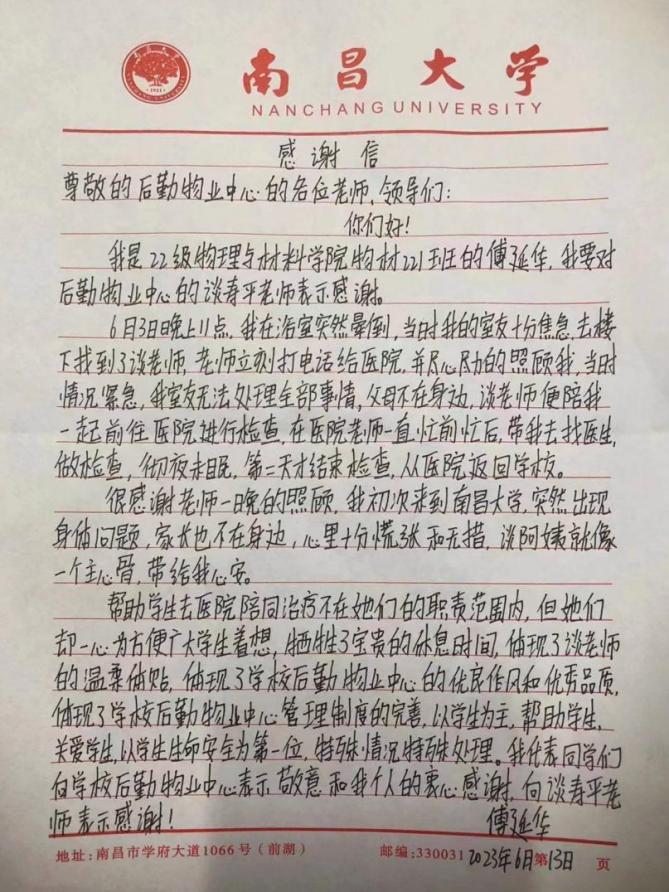 南昌大学
NANCHANG UNIVERSITY
1921
感谢信
尊敬的后勤物业中心的各位老师,领导们:
你们好!
我是22级物理与材料学院物材221班的傅延华,我要对
后勤物业中心的谈寿平老师表示感谢。
6月3日晚上11点,我在浴室突然晕倒,当时我的室友十分焦急,去楼
下找到了谈老师,老师立刻打电话给医院,并尽心尽力的照顾我,当时
情况紧急,我室友无法处理全部事情,父母不在身边,谈老师便陪我
一起前往医院进行检查,在医院老师一直忙前忙后,带我去找医生,
做检查,彻夜未眠,第二天才结束检查,从医院返回学校。
很感谢老师一晚的照顾,我初次来到南昌大学,突然出现
身体问题,家长也不在身边,心里十分慌张和无措,谈阿姨就像
一个主心骨,带给我心安。
帮助学生去医院陪同治疗不在她们的职责范围内,但她们
却一心为方便广大学生着想,牺牲了宝贵的休息时间,体现了谈老师
的温柔体贴,体现了学校后勤物业中心的优良作风和优秀品质,
体现了学校后勤物业中心管理制度的完善,以学生为主,帮助学生,
关爱学生,以学生生命安全为第一位,特殊情况特殊处理。我代表同学们
向学校后勤物业中心表示敬意和我个人的衷心感谢,向谈寿平老
师表示感谢!
傅延华
地址:南昌市学府大道1066号(前湖) 邮编:330031 2023年6月第13日 页